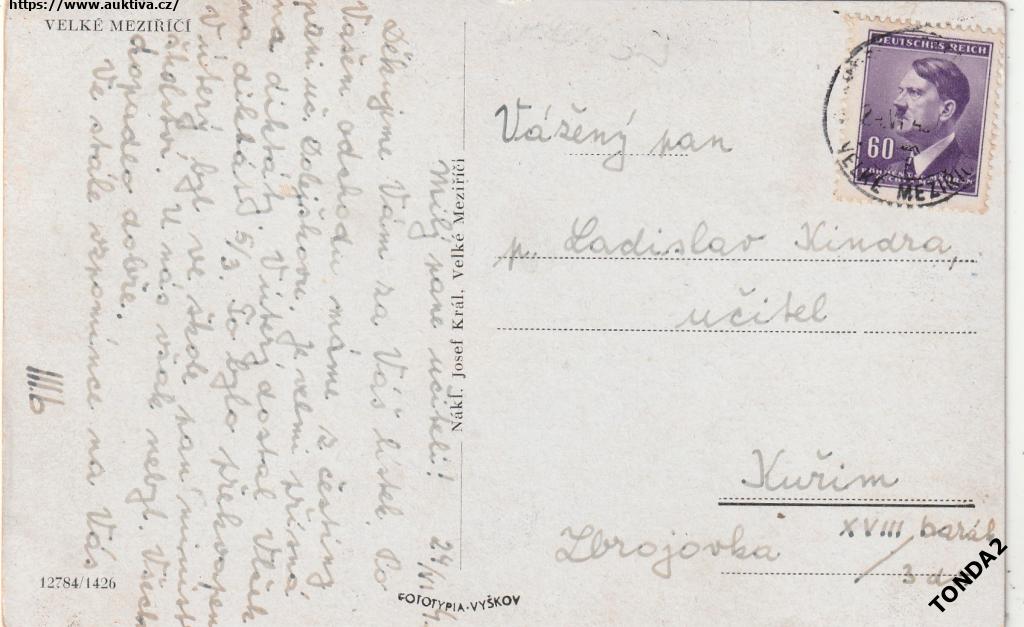 https://www.auktiva.cz/
VELKÉ MEZIŘÍČÍ
Milý pane učiteli! 24/VI
Děkujeme Vám za Váš lístek. Po
Vašem odchodu máme z češtiny
paní uč. Je velmi přísná
na diktáty. V úterý dostal Vlček
na diktát 5/3. To bylo překvapení
V úterý byl ve škole pan minist
školství. U nás však nebyl. Všich
dopadlo dobře.
Ve stálé vzpomínce na Vás
III.b
12784/1426
Nákl. Josef Král, Velké Meziříčí
FOTOTYPIA-VYŠKOV
DEUTSCHES REICH
60
VELKÉ MEZIŘÍČÍ
Vážený pan
p. Ladislav Kindra,
učitel
Kuřim
Zbrojovka
XVIII barák
3 d
TONDA2